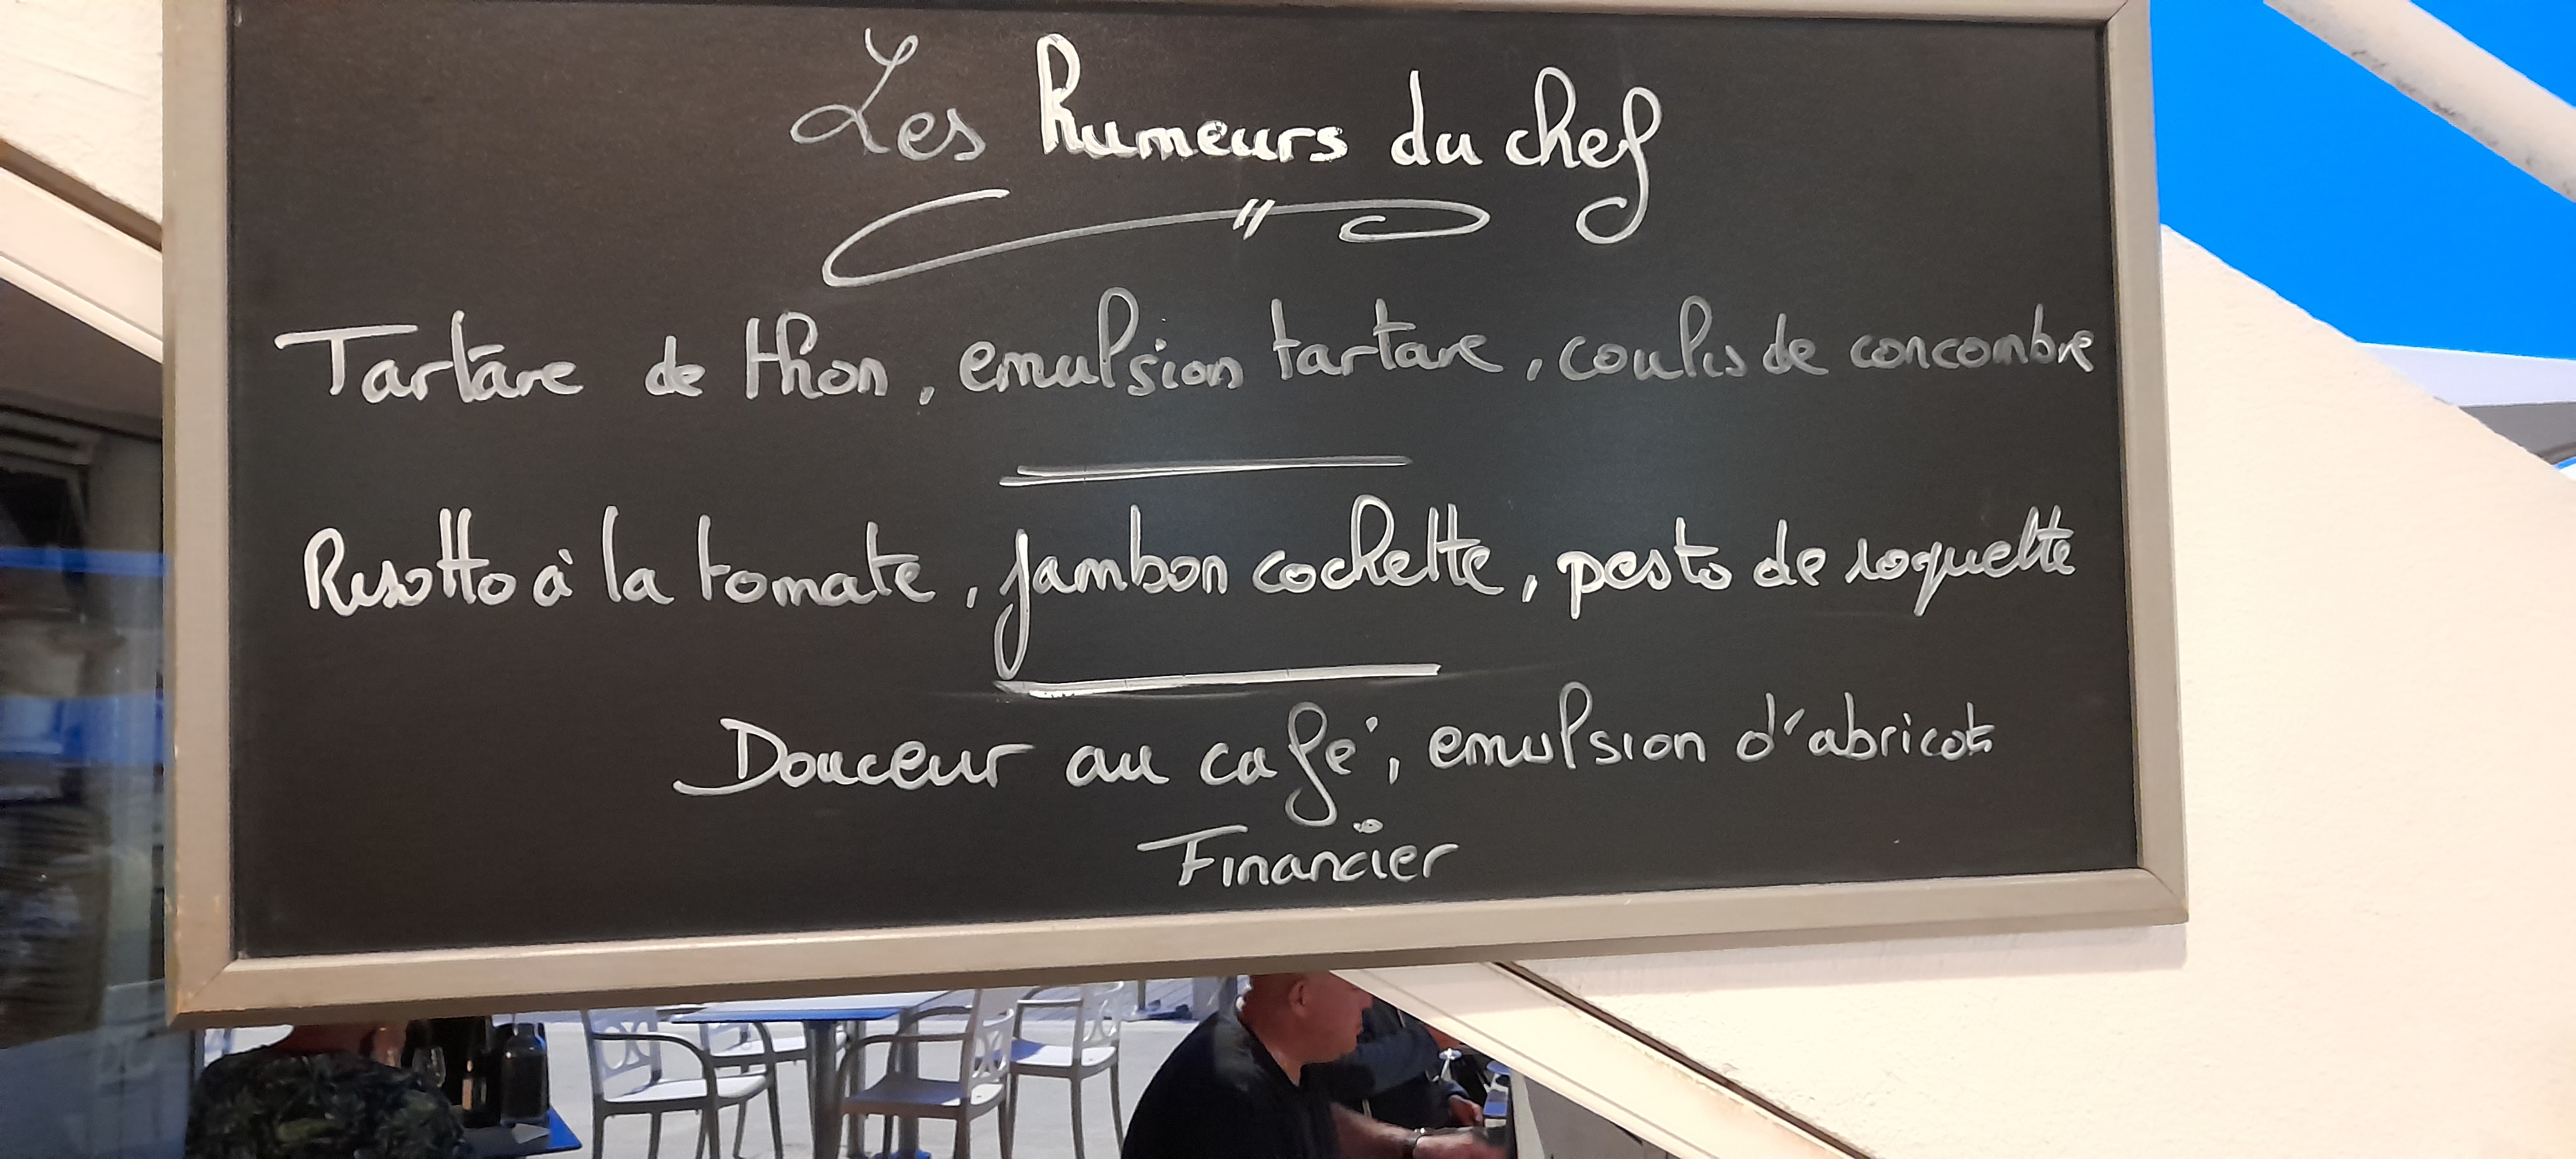 Les Rumeurs du chef
Tartare de thon, emulsion tartare, coulis de concombre
Risotto à la tomate, jambon cochette, pesto de roquette
Douceur au café, emulsion d'abricot
Financier